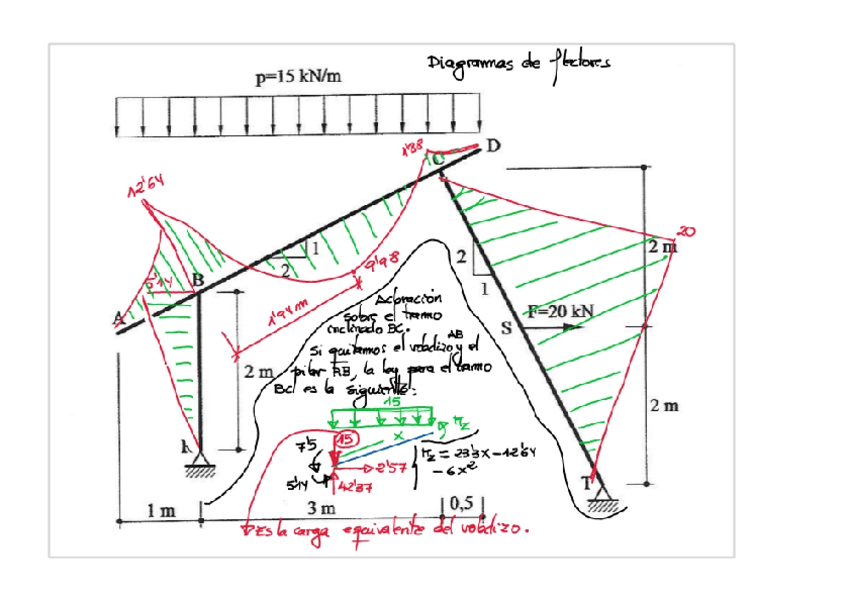 Diagramas de flectores
p=15 kN/m
D
1'88
C
12'64
20
2 m
1
2
9'98
2
1
5'14
B
A
1'94m
F=20 kN
S
Aclaración
sobre el tramo
inclinado BC.
Si quitamos el voladizo AB y el
pilar RB, la ley para el tramo
BC es la siguiente:
2 m
2 m
15
Mz
x
15
7'5
Mz = 23'3x - 12'64
- 6x²
2'57
5'14
42'87
T
1 m
3 m
0,5
Es la carga equivalente del voladizo.